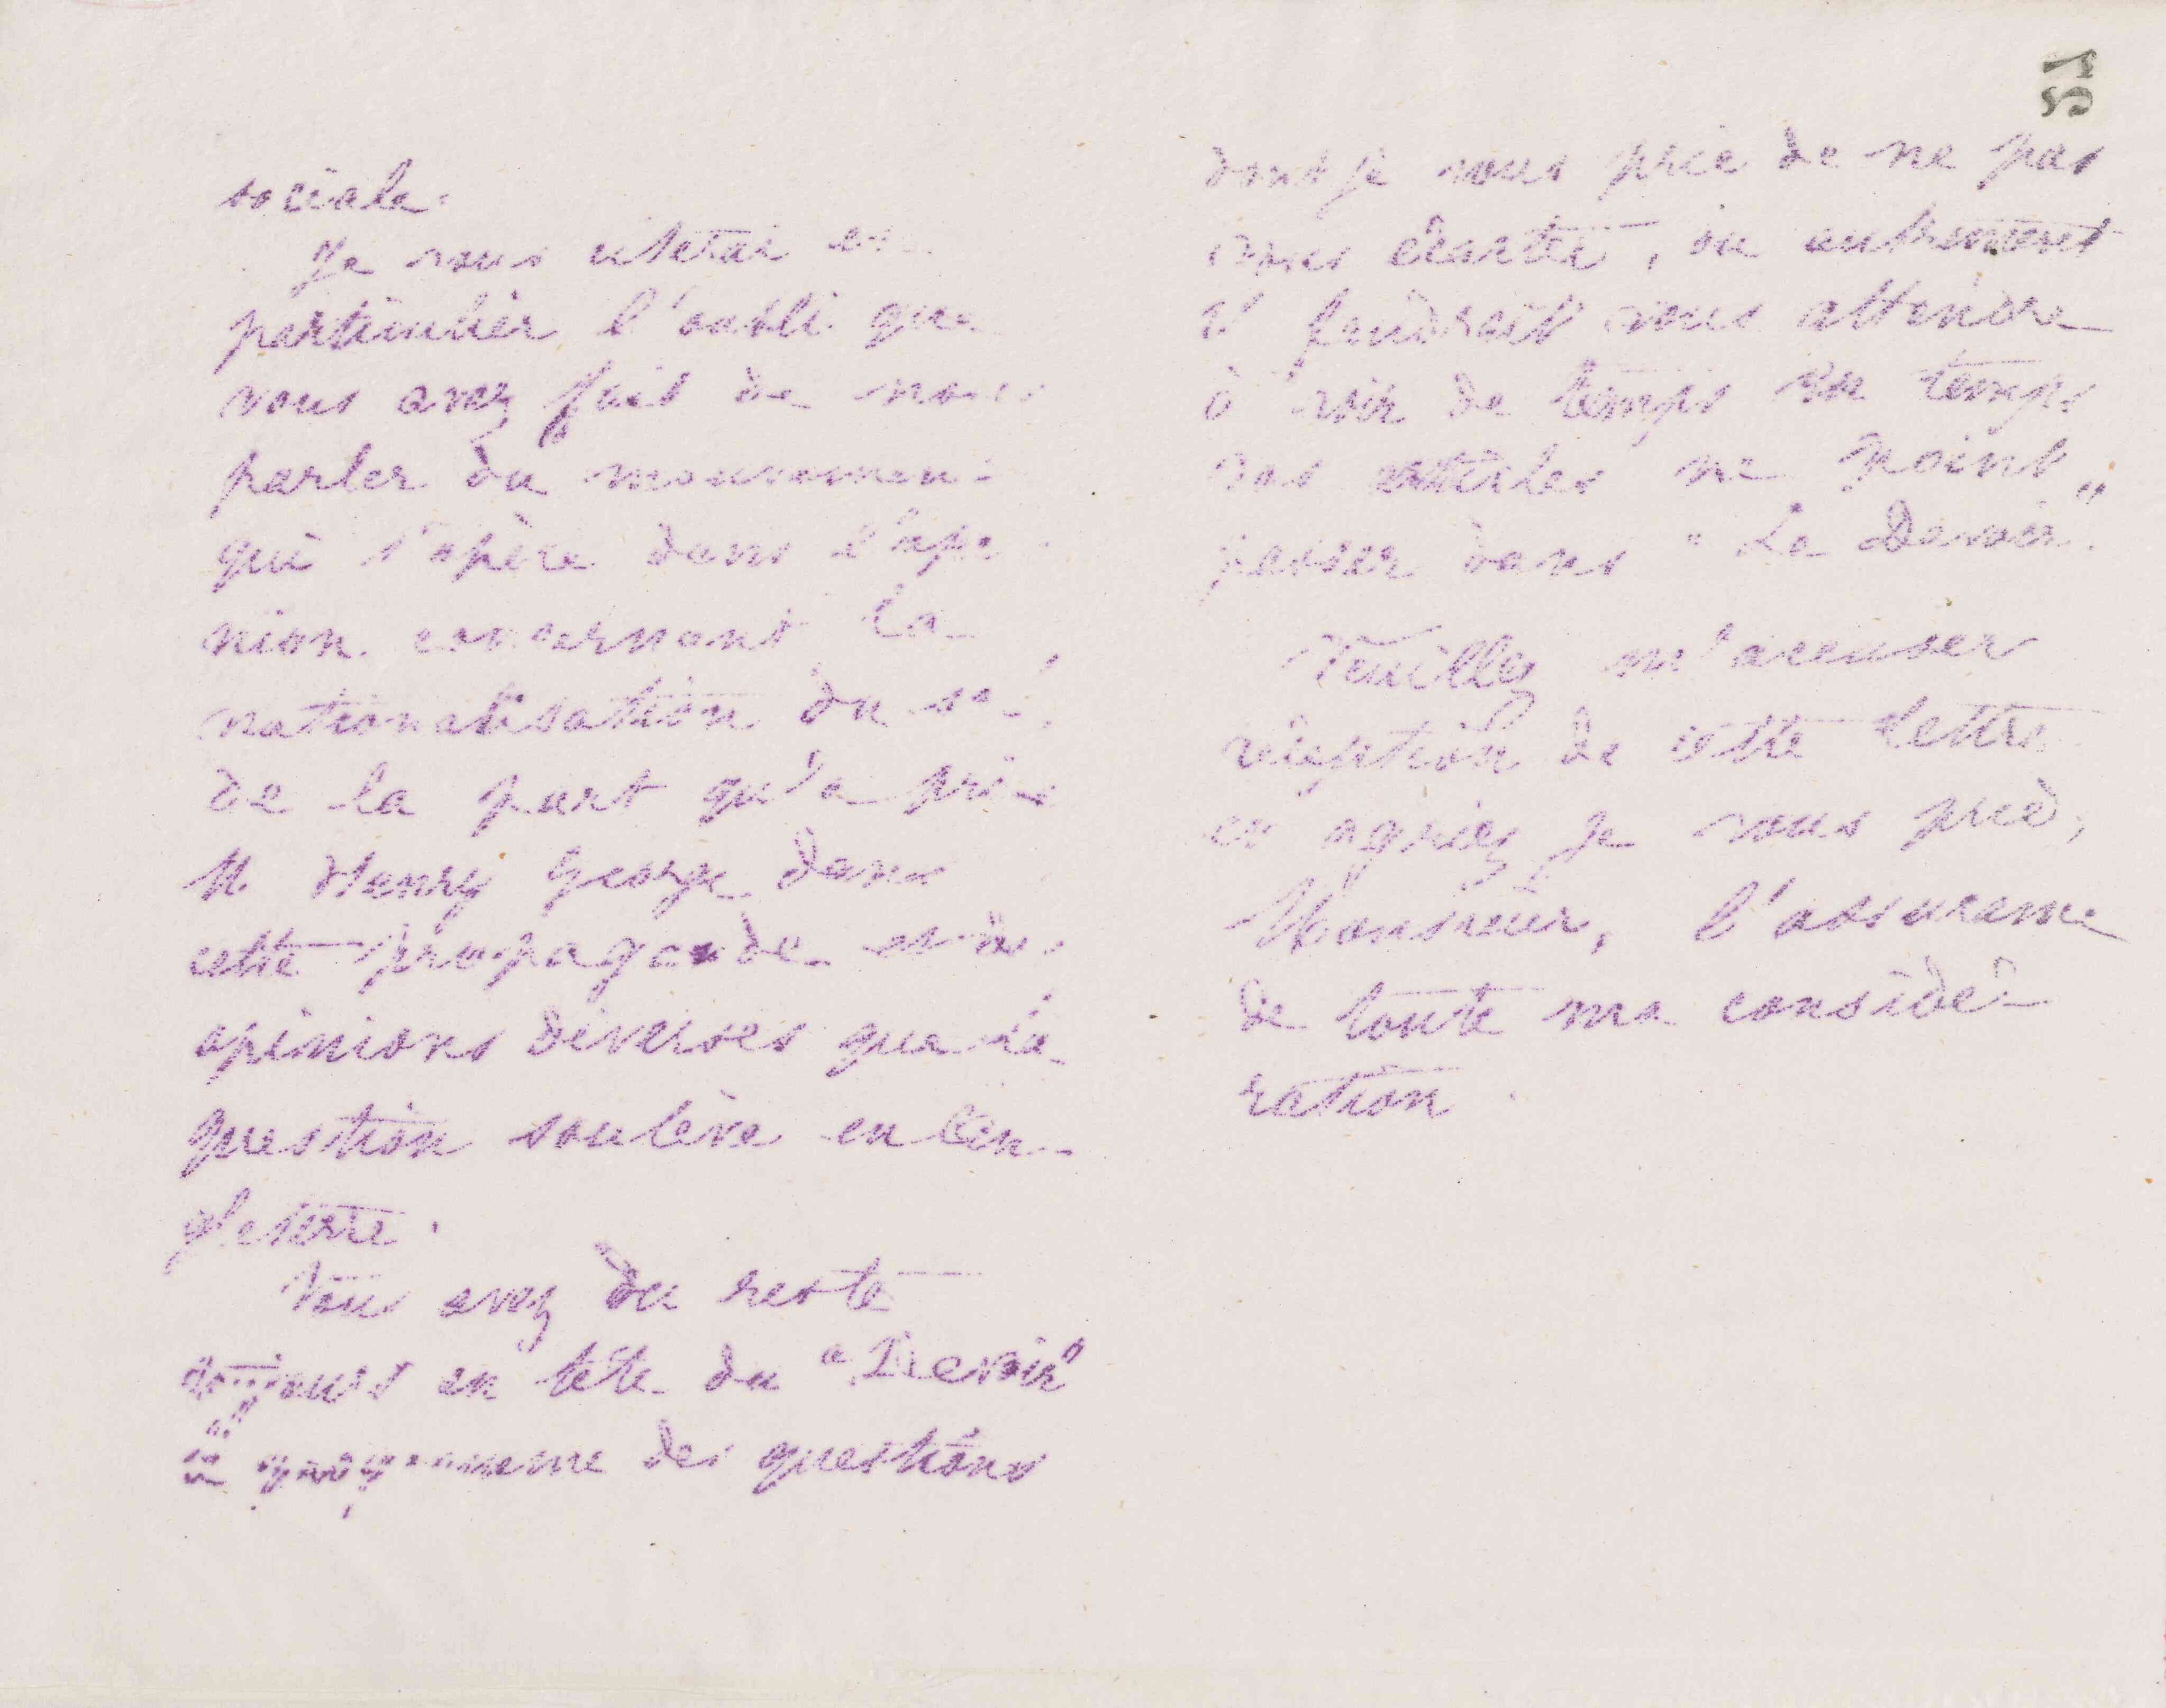 51
sociale.
Je vous citerai en
particulier l'oubli que
vous avez fait de nous
parler du mouvement
qui s'opère dans l'opi
nion concernant la
nationalisation du sol,
de la part qu'a prise
M. Henry George dans
cette propagande et des
opinions diverses que la
question soulève en An-
gleterre.
Vous avez du reste
toujours en tête du "Devoir"
le programme des questions
dont je vous prie de ne pas
vous écarter, ou autrement
il faudrait vous attendre
à voir de temps en temps
vos articles ne point
passer dans "Le Devoir".
Veuillez m'accuser
réception de cette lettre
et agréez je vous prie,
Monsieur, l'assurance
de toute ma considé-
ration.